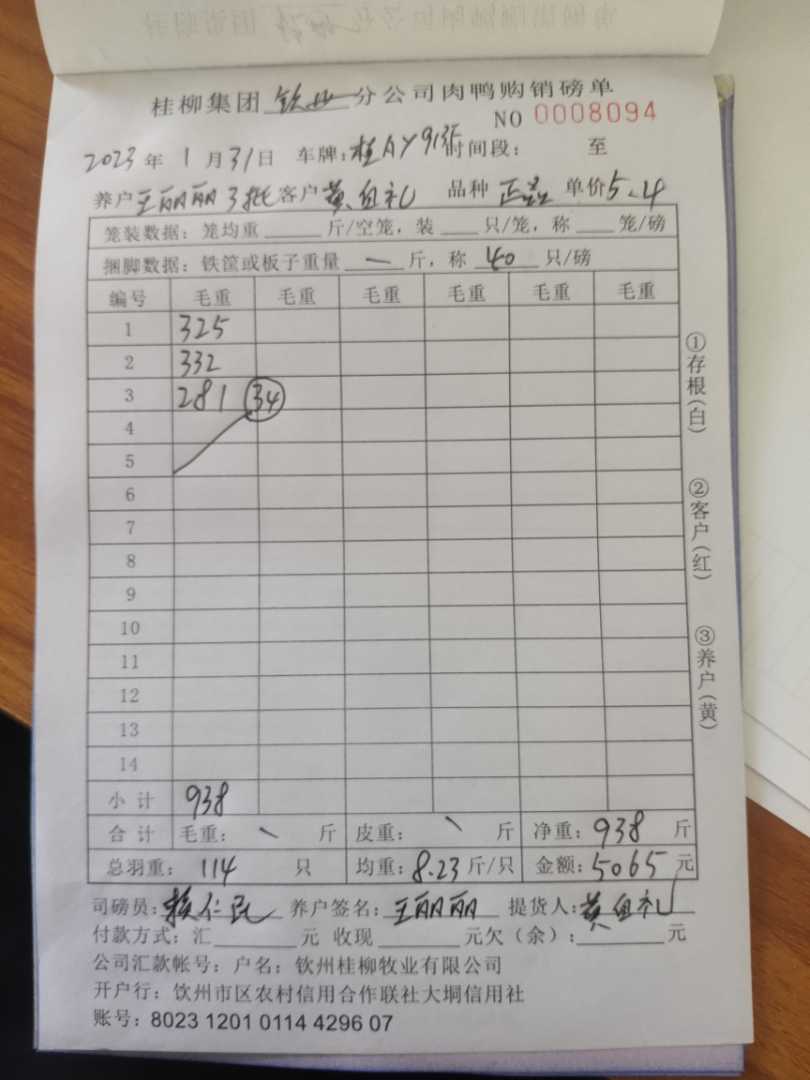 桂柳集团 钦州 分公司肉鸭购销磅单
NO 0008094
2023 年 1 月 31 日 车牌: 桂AY913F 时间段: 至
养户 王丽丽3批 客户 黄 礼 品种 正品 单价 5.4
笼装数据: 笼均重 斤/空笼, 装 只/笼, 称 笼/磅
捆脚数据: 铁筐或板子重量 一 斤, 称 40 只/磅
编号 毛重 毛重 毛重 毛重 毛重 毛重
1 325
2 332
3 281 34
4
5
6
7
8
9
10
11
12
13
14
小计 938
合计 毛重: 斤 皮重: 斤 净重: 938 斤
总羽重: 114 只 均重: 8.23 斤/只 金额: 5065 元
司磅员: 赖仁民 养户签名: 王丽丽 提货人: 黄 礼
付款方式: 汇 元 收现 元欠(余): 元
公司汇款帐号: 户名: 钦州桂柳牧业有限公司
开户行: 钦州市区农村信用合作联社大垌信用社
账号: 8023 1201 0114 4296 07
①存根(白)
②客户(红)
③养户(黄)